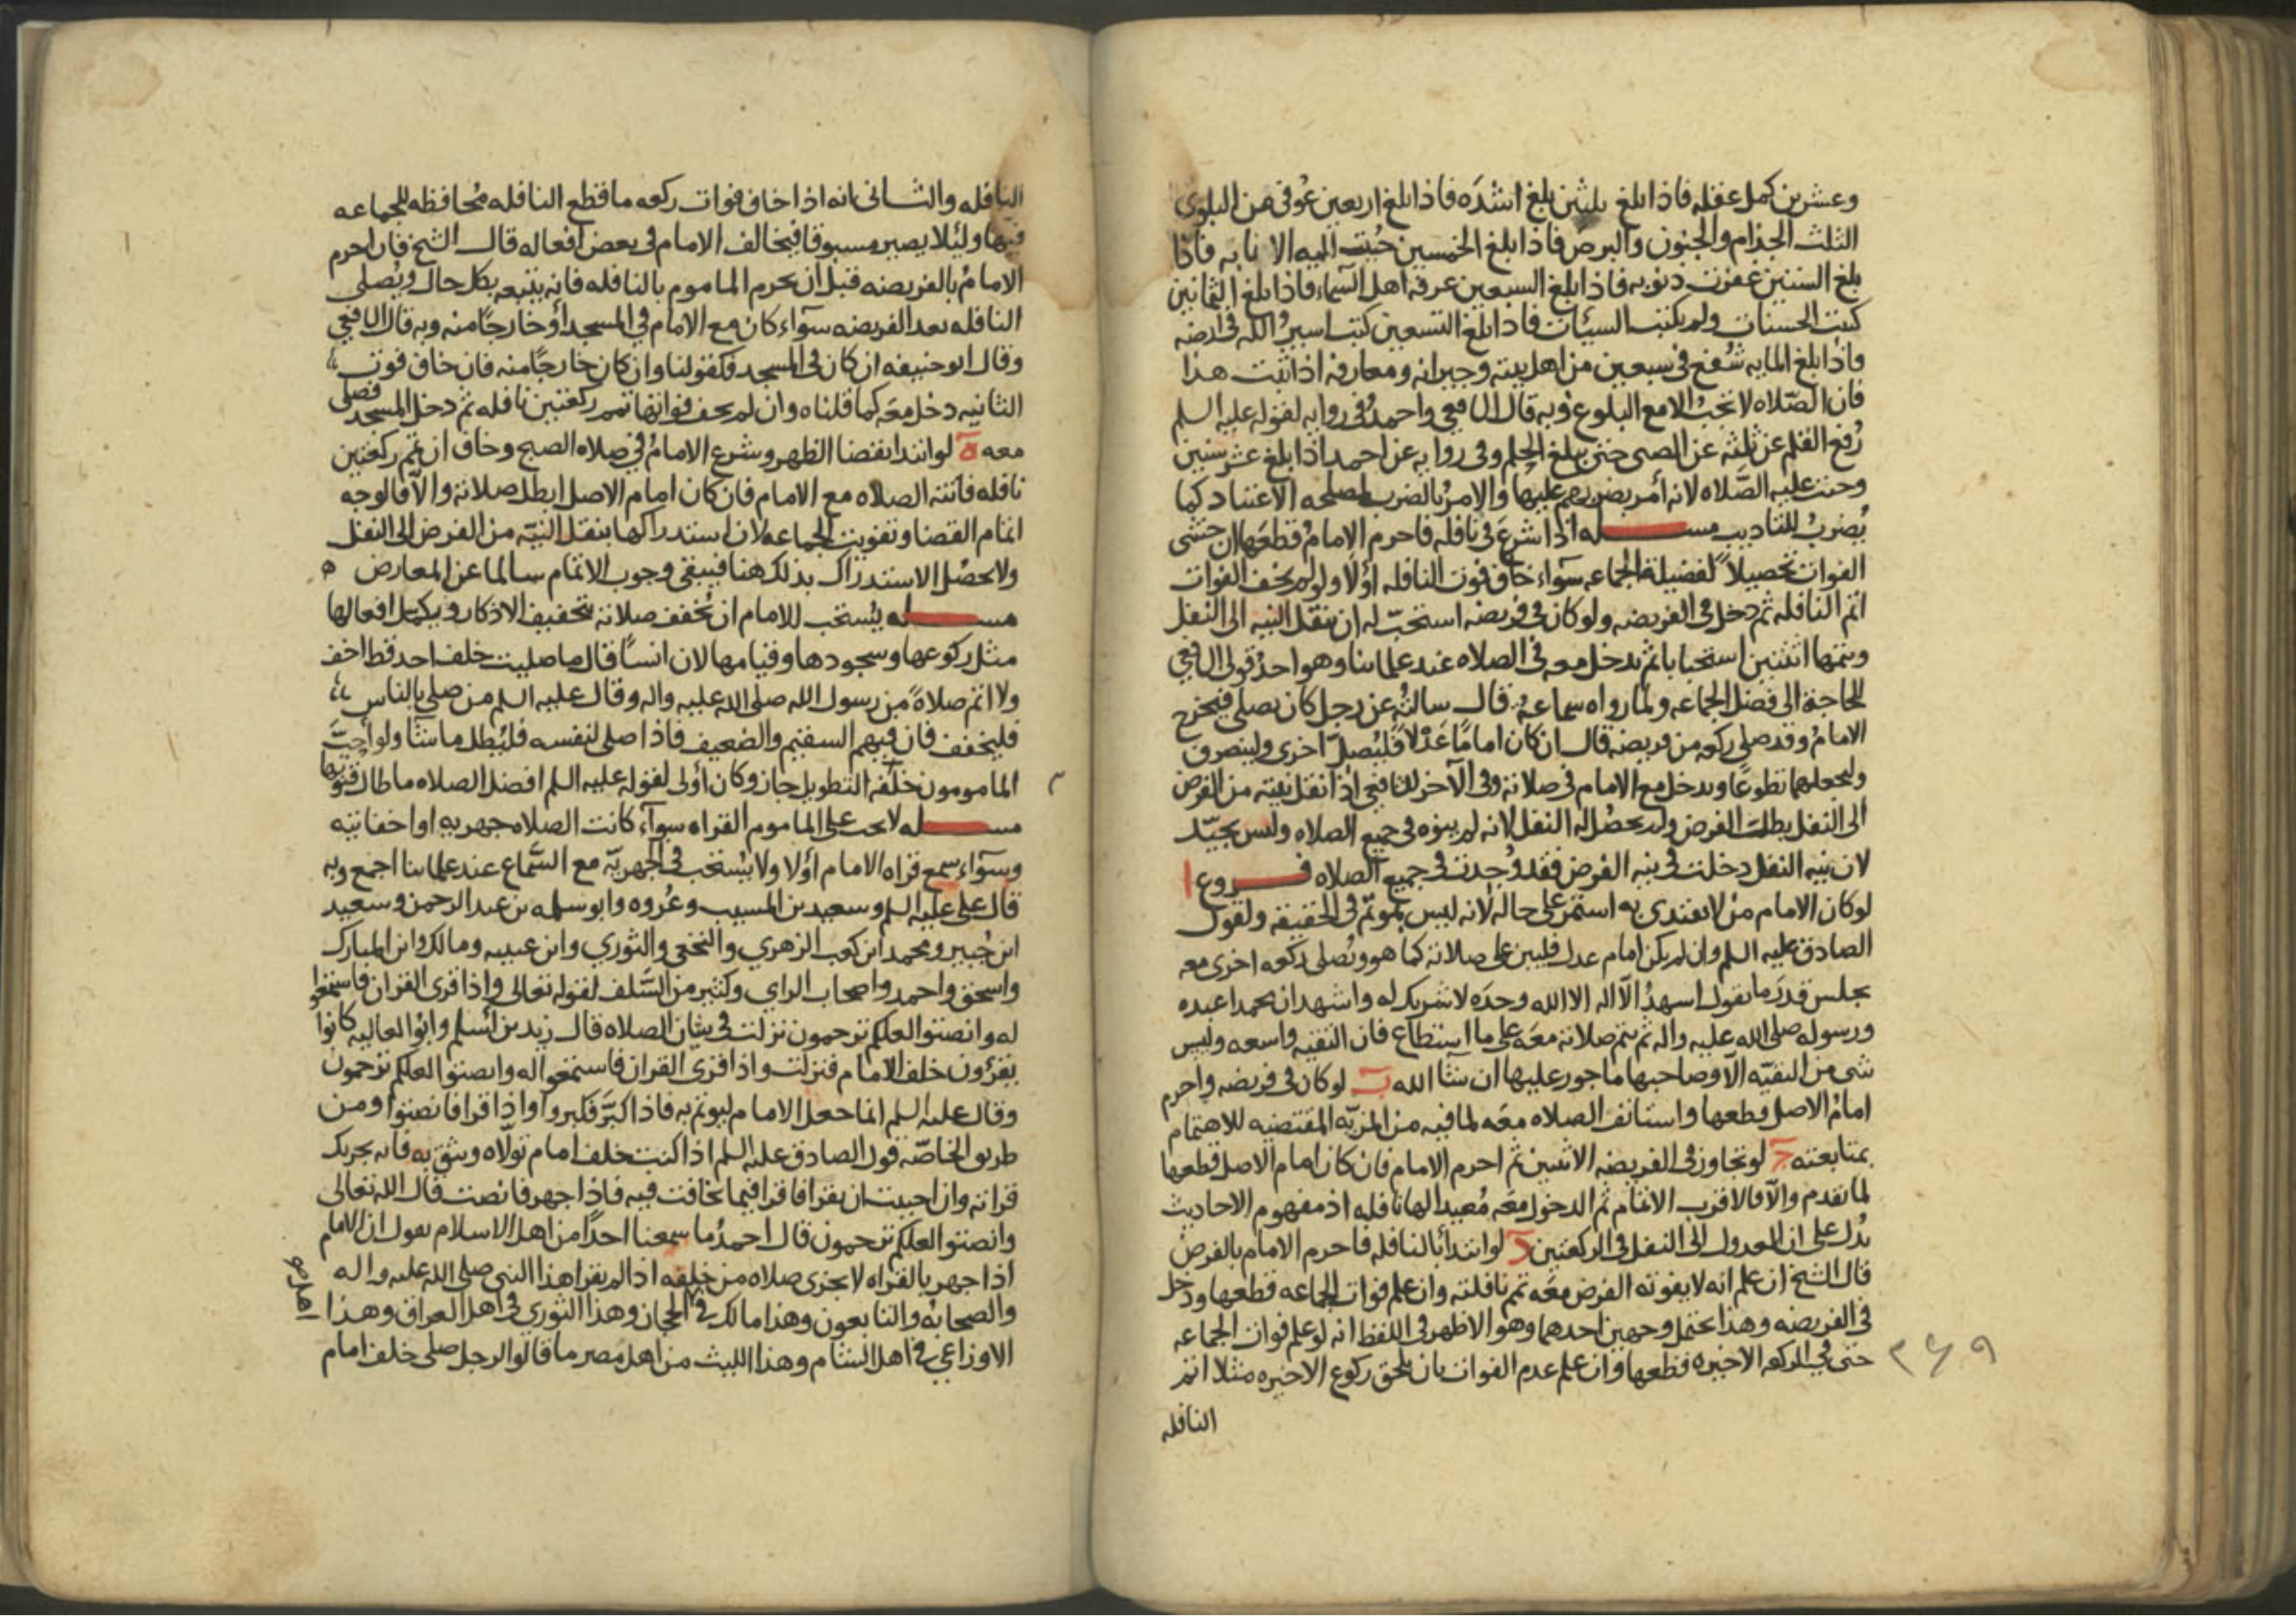 وعشرين كمل عقله فاذا بلغ ثلثين بلغ اشدّه فاذا بلغ اربعين عُوفى من البلوى
الثلث الجذام والجنون والبرص فاذا بلغ الخمسين حُببت اليه الانابه فاذا
بلغ الستين غفرت ذنوبه فاذا بلغ السبعين عرفه اهل السماء فاذا بلغ الثمانين
كتبت الحسنات ولم يكتب السيئات فاذا بلغ التسعين كتب اسير الله فى ارضه
واذا بلغ المايه شُفّع فى سبعين من اهل بيته وجيرانه ومعارفه اذا ثبت هذا
فان الصّلاه لا تجبُ الا مع البلوغ وبه قال الشافعي واحمد فى روايه لقوله عليه السلم
رُفع القلم عن ثلثه عن الصبى حتى يبلغ الحلم وفى روايه عن احمد اذا بلغ عشر سنين
وجبت عليه الصّلاه لانه أمر بضربهم عليها والامرُ بالضرب لمصلحه الاعتياد كما
يُضربُ للتاديب مســـله اذا شرع فى نافله فاحرم الامامُ قطعَها ان خشى
الفوات تحصيلاً لفضيلة الجماعه سوآء خاف فوت النافله اولا ولو لم يخف الفوات
اتم النافله ثم دخل فى الفريضه ولو كان فى فريضه استحبّ له ان ينقل النيه الى النفل
ويتمها اثنتين استحبابا ثم يدخل معه فى الصلاه عند علمائنا وهو احد قولى الشافعي
للحاجة الى فضل الجماعه ولما رواه سماعهُ قال سالتُه عن رجل كان يصلى فيخرج
الامامُ وقد صلى ركعه من فريضه قال ان كان امامًا عَدْلاً فليُصلّ اخرى ولينصرف
وليجعلهما تطوعًا وليدخل مع الامام فى صلاته وفى الآخر للشافعي اذا نقل نيته من الفرض
الى النفل بطلت الفرض ولم يحصُل له النفل لانه لم ينوه فى جميع الصلاه وليس بجيّد
لان نيه النفل دخلت فى نيه الفرض فقد وُجدت فى جميع الصلاه فـــروع ا
لو كان الامام من لا يقتدى به استمر على حاله لانه ليس بمؤتم فى الحقيقه ولقول
الصادق عليه السلم وان لم يكن امام عدل فليبن على صلاته كما هو ويُصلى ركعه اخرى معه
يجلس قدرَ ما يقول اشهدُ الّا اله الا الله وحدَه لا شريك له واشهد ان محمدا عبده
ورسوله صلى الله عليه واله ثم يتم صلاته معه على ما استطاع فان التقيه واسعه وليس
شى من التقيّه الّا وصاحبها ماجور عليها ان شا الله ب لو كان فى فريضه واحرم
امامُ الاصل قطعها واستانف الصلاه معه لما فيه من المزيّه المقتضيه للاهتمام
بمتابعته ج لو تجاوز فى الفريضه الاثنين ثم احرم الامام فان كان امام الاصل قطعها
لما تقدم والّا فالاقرب الاتمام ثم الدخول معه مُعيدا لها نافله اذ مفهوم الاحاديث
يدُل على ان العدول الى النفل فى الركعتين د لو ابتدأ بالنافله فاحرم الامام بالفرض
قال الشيخ ان علم انه لا يفوته الفرض معه تم نافلته وان علم فوات الجماعه قطعها ودخل
فى الفريضه وهذا يحتمل وجهين احدهما وهو الاظهر فى اللفظ انه لو علم فوات الجماعه
حتى فى الركعه الاخيره قطعها وان علم عدم الفوات بان يلحق ركوع الاخيره مثلا اتم
النافله
النافله والثانى انه اذا خاف فوات ركعه ما قطع النافله مُحافظه للجماعه
فيها ولئلا يصير مسبوقا فيخالف الامام فى بعض افعاله قال الشيخ فان احرم
الامامُ بالفريضه قبل ان يحرم الماموم بالنافله فانه يتبعه بكل حال ويُصلى
النافله بعد الفريضه سوآء كان مع الامام فى المسجد أو خارجًا منه وبه قال الشافعي
وقال ابو حنيفه ان كان فى المسجد فكقولنا وان كان خارجًا منه فان خاف فوت
الثانيه دخل معه كما قلناه وان لم يخف فواتها تمم ركعتين نافله ثم دخل المسجد فصلى
معه ه لو ابتدا بقضا الظهر وشرع الامامُ فى صلاه الصبح وخاف ان تمم ركعتين
نافله فاتته الصلاه مع الامام فان كان امام الاصل ابطل صلاته والّا فالوجه
اتمام القضا وتفويت الجماعه لان استدراكها بنقل النيّه من الفرض الى النفل
ولا يحصُل الاستدراك بذلك هنا فيبقى وجوب الاتمام سالما عن المعارض ه
مســـله يُستحب للامام ان يُخفف صلاته بتخفيف الاذكار ويكمل افعالها
مثل ركوعها وسجودها وقيامها لان انسًا قال ما صليت خلف احد قط اخف
ولا اتم صلاةً من رسول الله صلى الله عليه واله وقال عليه السلم من صلى بالناس
فليخفف فان فيهم السقيم والضعيف فاذا صلى لنفسه فليُطل ما شآ ولو احبّ
المامومون خلفه التطويل جاز وكان أولى لقوله عليه السلم افضل الصلاه ما طال قنوتها
مســـله لا يجب على الماموم القراه سوآء كانت الصلاه جهريه او اخفاتيه
وسوآء سمع قراه الامام أولا ولا يُستحب فى الجهريّه مع السّماع عند علمائنا اجمع وبه
قال على عليه السلم وسعيد بن المسيب وعُروه وابو سلمه بن عبد الرحمن وسعيد
ابن جُبير ومحمد ابن كعب الزهري والنخعي والثوري وابن عيينه ومالك وابن المبارك
واسحق واحمد واصحاب الراي وكثير من السّلف لقوله تعالى واذا قرى القران فاستمعوا
له وانصتوا لعلكم ترحمون نزلت فى شان الصلاه قال زيد بن اسلم وابو العاليه كانوا
يقرؤن خلف الامام فنزلت واذا قرى القران فاستمعوا له وانصتوا لعلكم ترحمون
وقال عليه السلم انما جعل الامام ليوتم به فاذا كبّر فكبروا واذا قرا فانصتوا ومن
طريق الخاصّه قول الصادق عليه السلم اذا كنت خلف امام تولّاه وتثق به فانه يجزيك
قراته وان احببت ان تقرا فاقرا فيما يخافت فيه فاذا جهر فانصت قال الله تعالى
وانصتوا لعلكم ترحمون قال احمدُ ما سمعنا احدًا من اهل الاسلام يقول ان الامام
اذا جهر بالقراه لا يجزى صلاه من خلفه اذا لم يقرا هذا النبى صلى الله عليه واله
والصحابه والتابعون وهذا مالك فى الحجاز وهذا الثوري فى اهل العراق وهذا
الاوزاعي فى اهل الشام وهذا الليث من اهل مصر ما قالوا لرجل صلى خلف امام